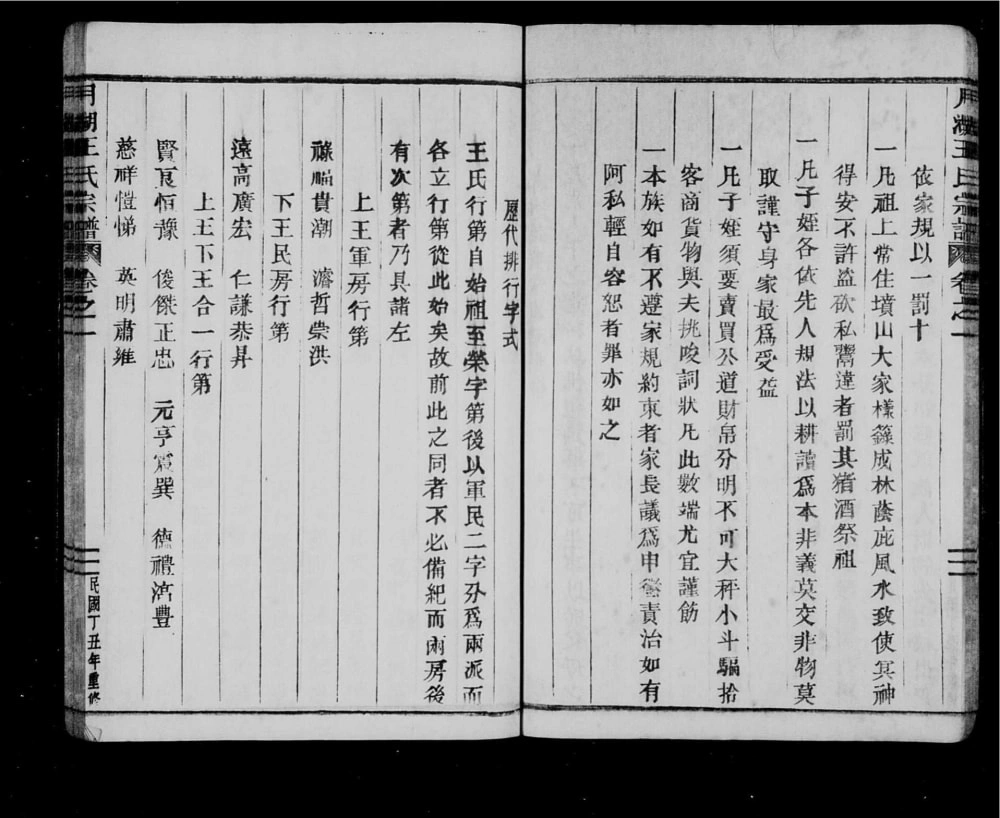 月湖王氏宗譜 卷之一
依家規以一罰十
一凡祖上常住墳山大家樣籙成林蔭庇風水致使冥神
得安不許盜砍私鬻違者罰其猪酒祭祖
一凡子姪各依先人規法以耕讀爲本非義莫交非物莫
取謹守身家最爲受益
一凡子姪須要賣買公道財帛分明不可大秤小斗騙拾
客商貨物與夫挑唆詞狀凡此數端尤宜謹飭
一本族如有不遵家規約束者家長議爲申飭責治如有
阿私輕自容恕者罪亦如之
歷代排行字式
王氏行第自始祖至榮字第後以軍民二字分爲兩派而
各立行第從此始矣故前此之同者不必備紀而兩房後
有次第者乃具諸左
上王軍房行第
祿福貴潮 濬哲崇洪
下王民房行第
遠高廣宏 仁謙恭昇
上王下王合一行第
賢良恒豫 俊傑正忠 元亨震巽 德禮 豐
慈祥愷悌 英明肅雍
月湖王氏宗譜 卷之一 民國丁丑年重修